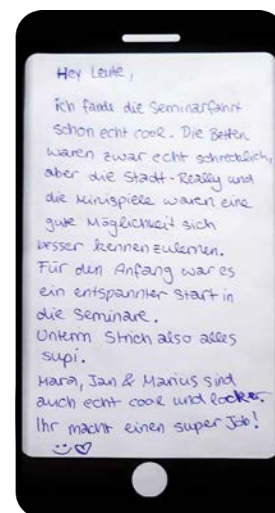 Hey Leute,
ich fands die Seminarfahrt
schon echt cool. Die Betten
waren zwar echt schrecklich,
aber die Stadt-Really und
die Minispiele waren eine
gute Möglichkeit sich
besser kennenzulernen.
Für den Anfang war es
ein entspannter Start in
die Seminare.
Unterm Strich also alles
supi.
Mara, Jan & Marius sind
auch echt cool und locker.
Ihr macht einen super Job!